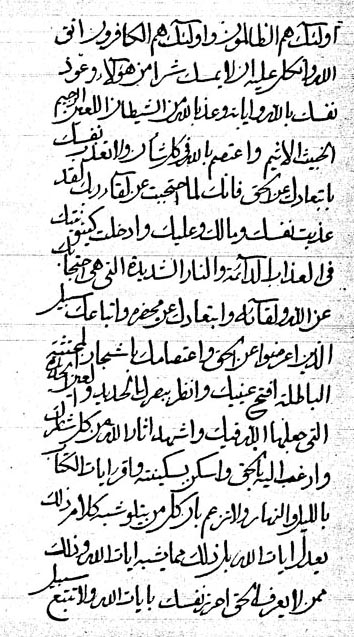 اولئك هم الظالمون واولئك هم الكافرون اتق
الله واتكل عليه ان لا يمسك شرا من هؤلاء وعوذ
نفسك بالله وايانه وعذ بالله من الشيطان اللعين الرجيم
الخبيث الاثيم واعتصم بالله في كل شأن ولا تعذب نفسك
بابتعادك عن الحق فانك لما احتجبت عن لقاء ربك لقد
عذبت نفسك ومالك وعليك وادخلت كينونيتك
في العذاب الدائم والنار الشديدة التي هي احتجابك
عن الله ولقائه وابتعادك عن وجهه واتباعك سبيل
الذين اعرضوا عن الحق واعتصامك باشجار المجتثة
الباطلة افتح عينيك وانظر ببصرك الحديد
التي جعلها الله فيك واشهد اثار الله من كل شطر
وارغب اليه بالحق واسكن بسكينته واقرء ايات الكتاب
بالليل والنهار ولا تزعم بان كل من يتلو شبه كلام من ذلك
يعدل ايات الله بل ذلك مما يشبه ايات الله وذلك
ممن لا يعرف الحق احرز نفسك بايات الله ولا تتبع سبيل